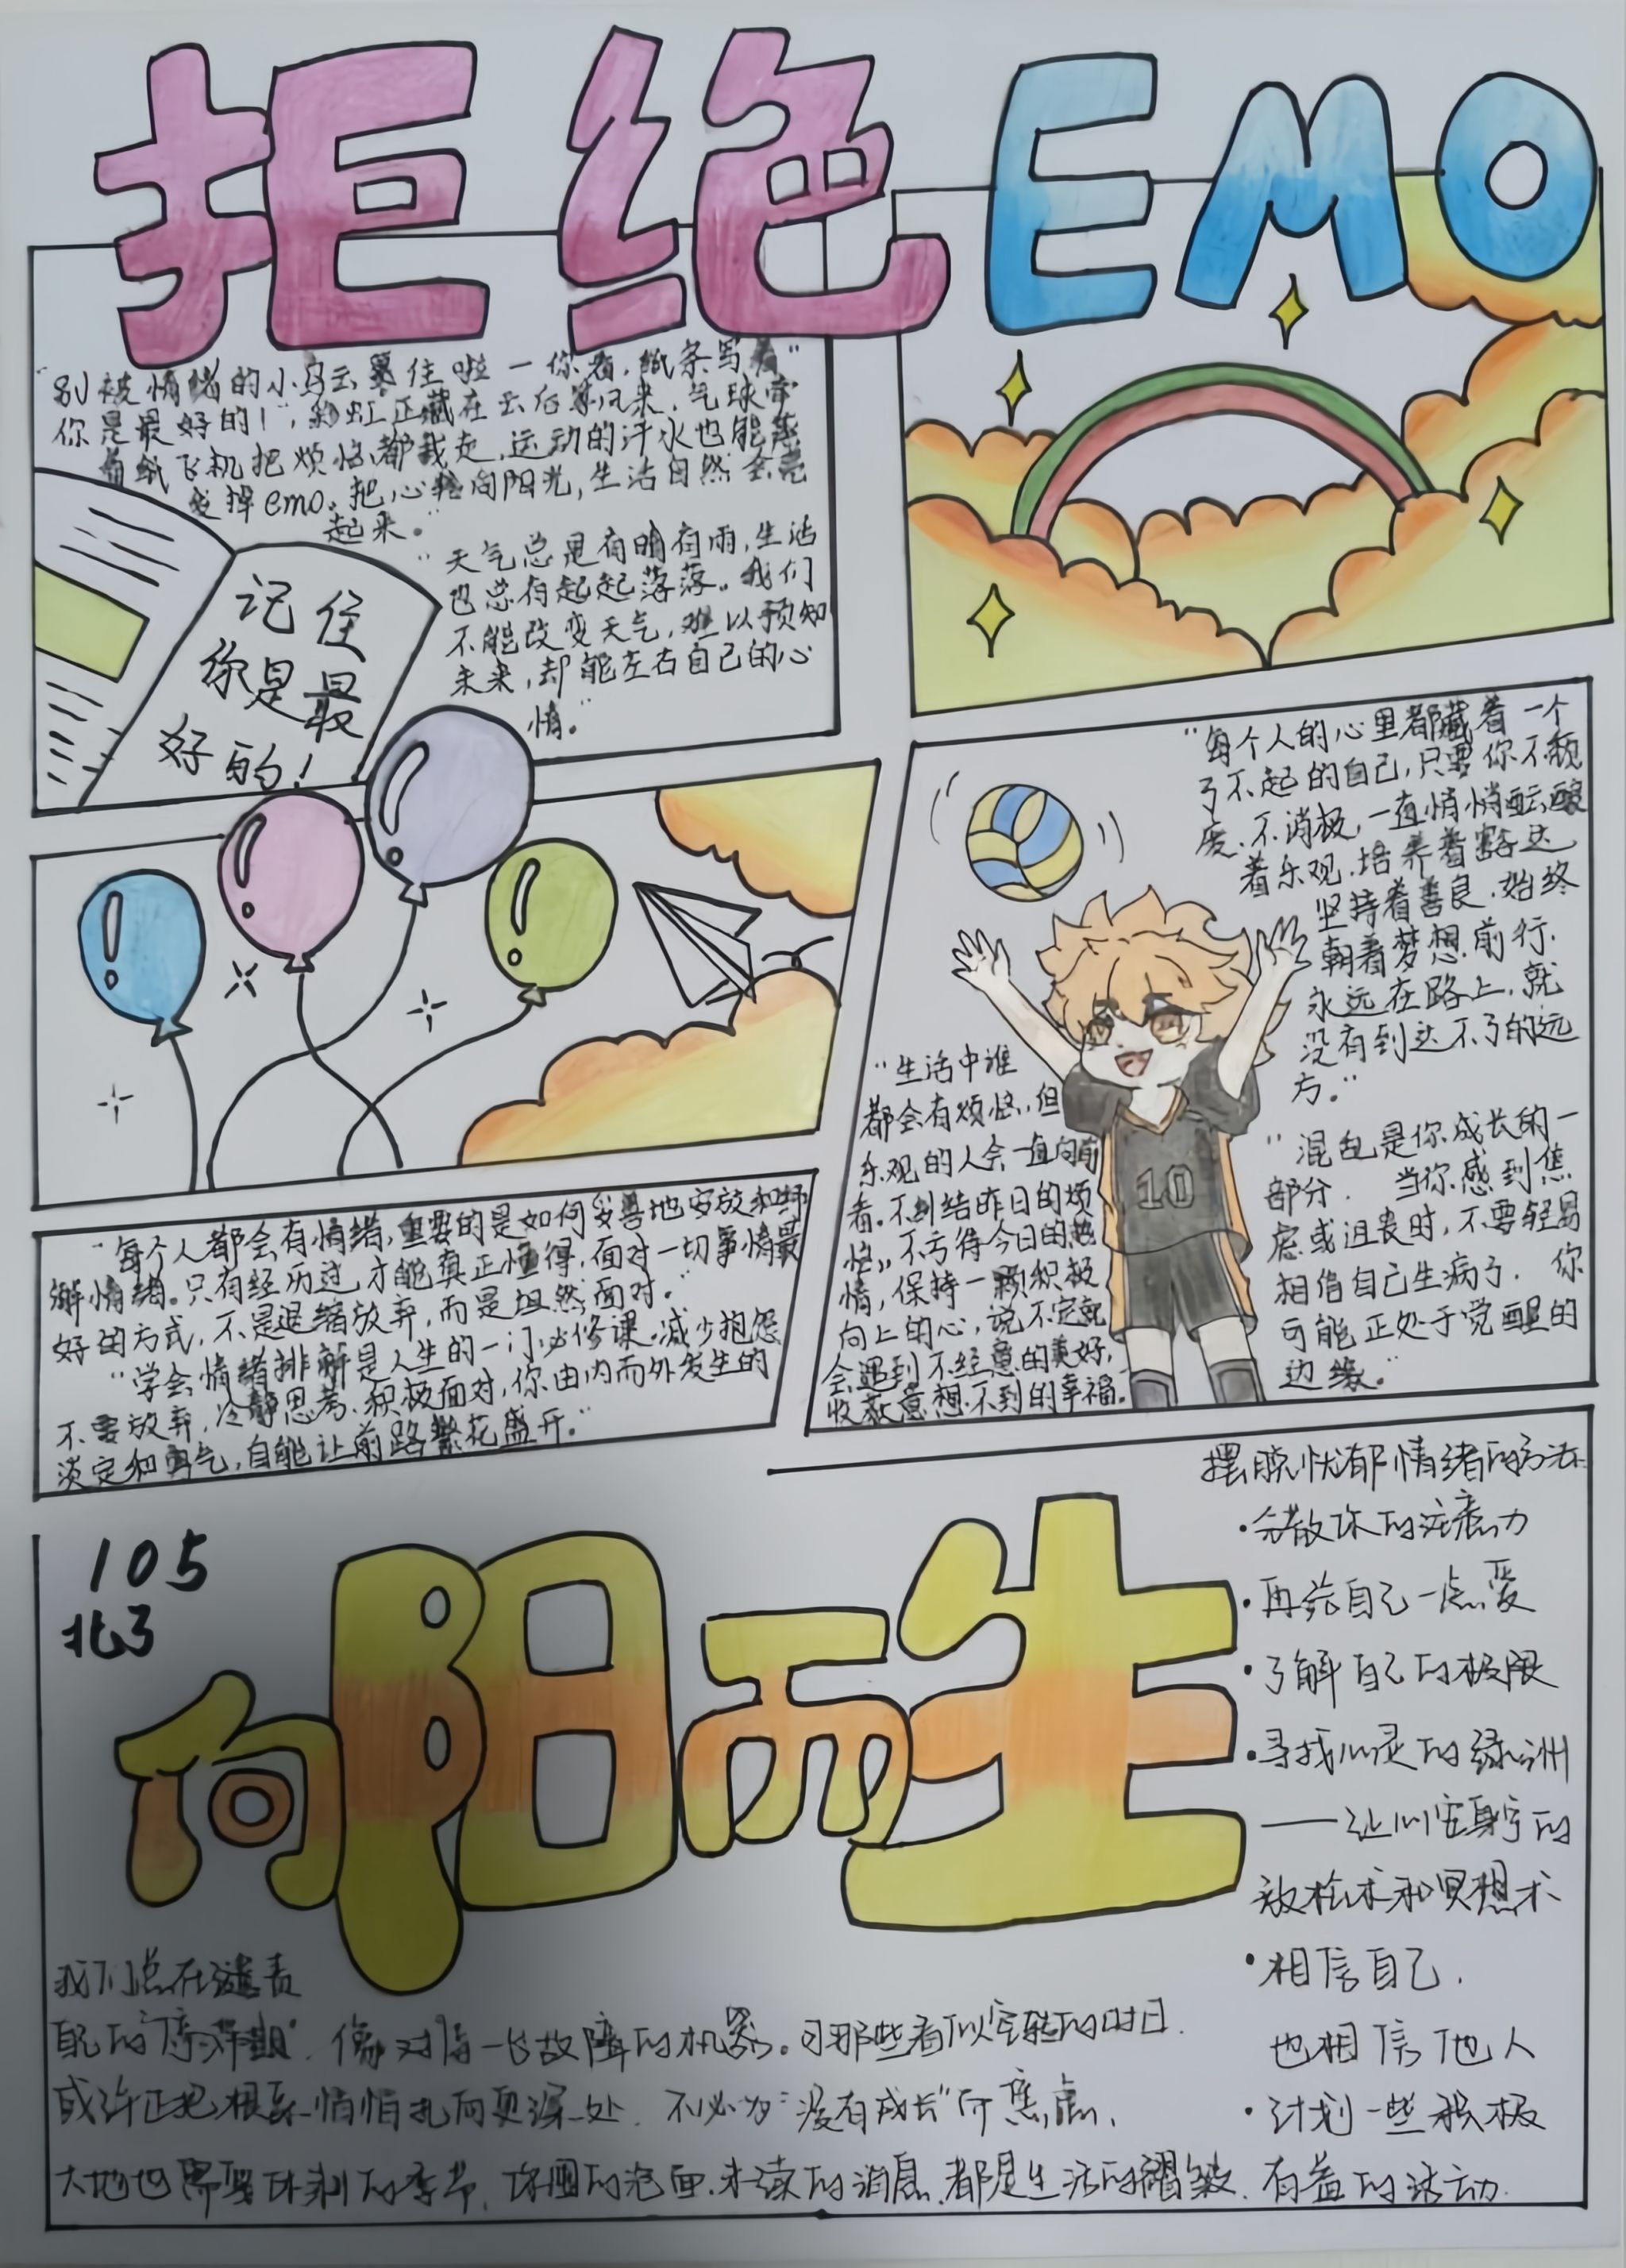 拒绝EMO
"别被情绪的小乌云罩住啦一你看,纸条写着"
你是最好的!",彩虹正藏在云后等风来,气球带
着纸飞机把烦恼都载走,运动的汗水也能蒸
发掉emo。把心转向阳光,生活自然会亮
起来。"
"天气总是有晴有雨,生活
也总有起起落落。我们
不能改变天气,难以预知
未来,却能左右自己的心
情。"
记住
你是最
好的!
"每个人的心里都藏着一个
了不起的自己,只要你不颓
废,不消极,一直悄悄酝酿
着乐观,培养着豁达
坚持着善良,始终
朝着梦想前行,
永远在路上,就
没有到达不了的远
方。"
"生活中谁
都会有烦恼,但
乐观的人会一直向前
看。不纠结昨日的烦
恼,不亏待今日的热
情,保持一颗积极
向上的心,说不定就
会遇到不经意的美好,
收获意想不到的幸福。
10
"混乱是你成长的一
部分. 当你感到焦
虑或沮丧时,不要轻易
相信自己生病了. 你
可能正处于觉醒的
边缘。"
"每个人都会有情绪,重要的是如何妥善地安放和纾
解情绪。只有经历过,才能真正懂得,面对一切事情最
好的方式,不是退缩放弃,而是坦然面对。"
"学会情绪排解是人生的一门必修课。减少抱怨
不要放弃,冷静思考,积极面对,你由内而外发生的
淡定和勇气,自能让前路繁花盛开。"
105
北3
向阳而生
摆脱忧郁情绪的方法
·分散你的注意力
·再给自己一点爱
·了解自己的极限
·寻找心灵的绿洲
——让心安身宁的
放松术和冥想术
·相信自己.
也相信他人
·计划一些积极
有益的活动.
我们总在谴责
自己的"停滞期",像对待一台故障的机器。可那些看似空转的时日.
或许正把根系悄悄扎向更深处. 不必为"没有成长"而焦虑.
大地也需要休耕的季节. 你囤的泡面.未读的消息.都是生活的褶皱.